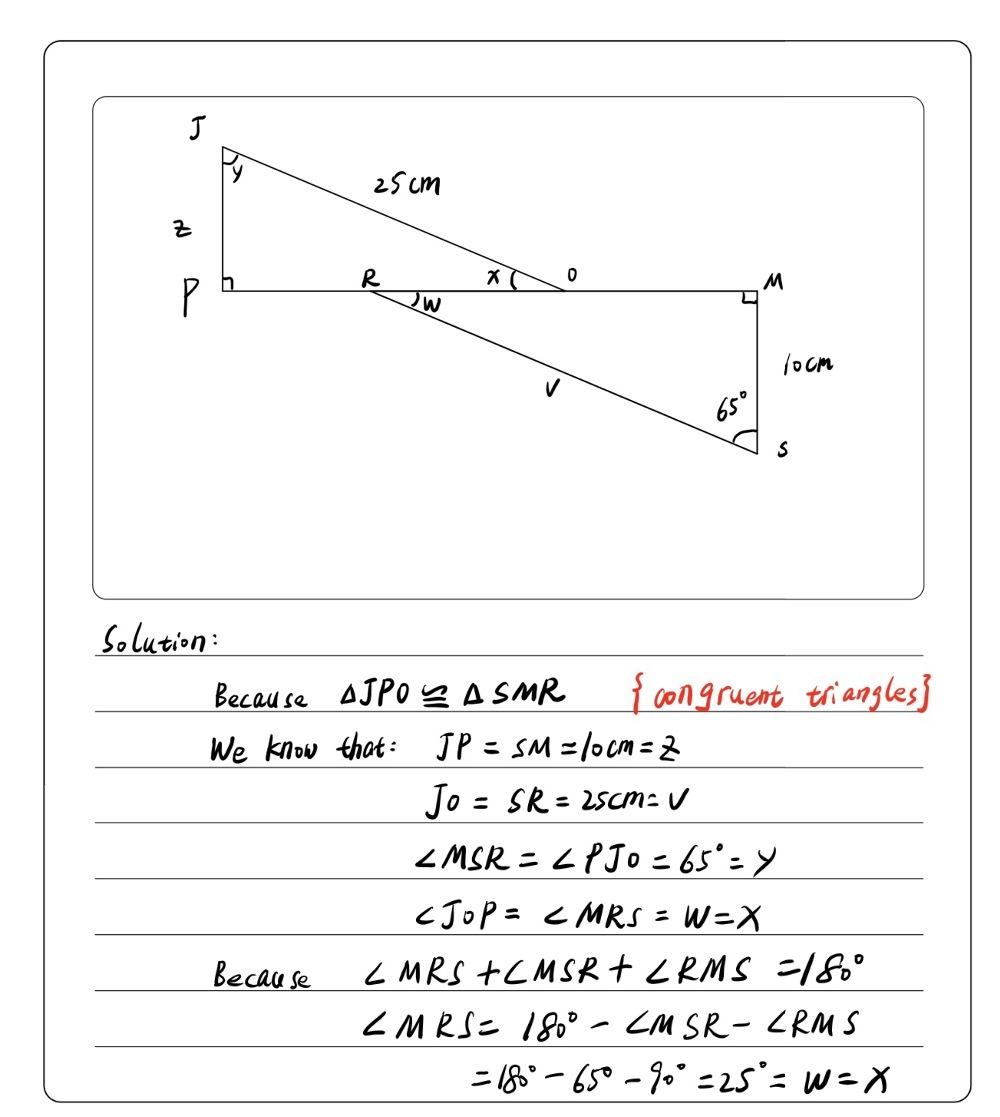 J
y
25cm
z
P
R
x
O
M
w
10cm
v
65°
S
Solution:
Because △JPO ≌ △SMR {congruent triangles}
We know that: JP = SM = 10cm = z
JO = SR = 25cm = v
∠MSR = ∠PJO = 65° = y
∠JOP = ∠MRS = w = x
Because ∠MRS + ∠MSR + ∠RMS = 180°
∠MRS = 180° - ∠MSR - ∠RMS
= 180° - 65° - 90° = 25° = w = x